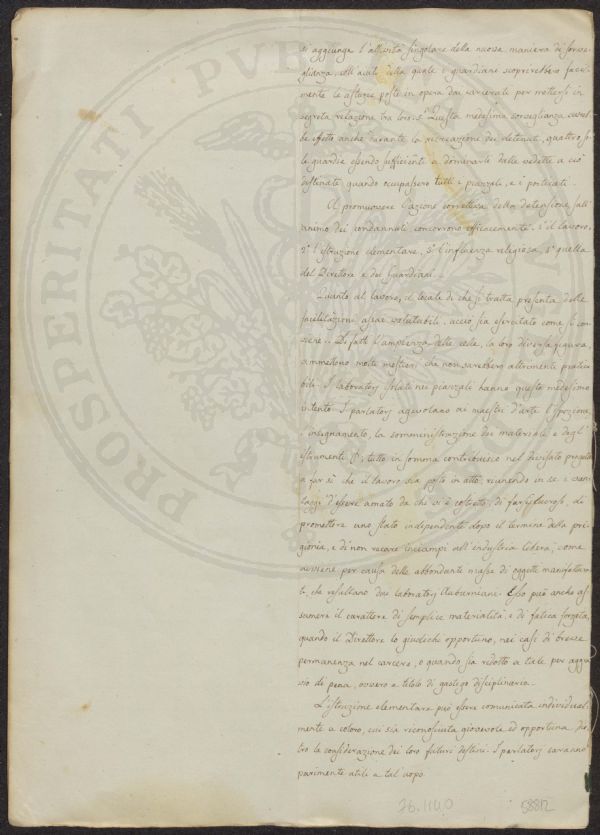 si aggiunga l'attività singolare della nuova maniera di sorve-
glianza coll'aiuto della quale i guardiani scoprirebbero facil-
mente le astuzie poste in opera dai carcerati per mettersi in
segreta relazione tra loro. Questa medesima sorveglianza avreb-
be effetto anche durante la ricreazione dei detenuti, quattro so-
le guardie essendo sufficienti a dominarli dalle vedette a ciò
destinate quando occupassero tutti i piazzali, e i porticati.
A promuovere l'azione correttiva della detenzione sull'
animo dei condannati concorrono efficacemente. 1° il lavoro,
2° l'istruzione elementare, 3° l'influenza religiosa, 4° quella
del Direttore e dei Guardiani.
Quanto al lavoro, il locale di che si tratta presenta delle
facilitazioni assai valutabili, acciò sia esercitato come si con-
viene. Di fatti l'ampiezza delle celle, la loro diversa figura,
ammettono molti mestieri che non sarebbero altrimenti pratica-
bili. I laboratorj isolati nei piazzali hanno questo medesimo
intento. I parlatorj agevolano ai maestri d'arte l'ispezione,
l'insegnamento, la somministrazione dei materiali e degl'
istrumenti &, tutto in somma contribuisce nel divisato progetto
a far sì che il lavoro sia posto in atto, riunendo in se i van-
taggi d'essere amato da chi vi è costretto, di farsi lucroso, di
promettere uno stato indipendente dopo il termine della pri-
gionia, e di non recare inciampi all'industria libera, come
avviene per causa delle abbondanti masse di oggetti manifattura-
ti, che resultano dai laboratorj Auburniani. Esso può anche as-
sumere il carattere di semplice materialità e di fatica forzata,
quando il Direttore lo giudichi opportuno, nei casi di breve
permanenza nel carcere, o quando sia ridotto a tale per aggra-
vio di pena, ovvero a titolo di gastigo disciplinario.
L'istruzione elementare può essere comunicata individual-
mente a coloro, cui sia riconosciuta giovevole ed opportuna die-
tro la considerazione dei loro futuri destini. I parlatorj saranno
parimente utili a tal'uopo
PROSPERITATI PVBL
76.1140
58812